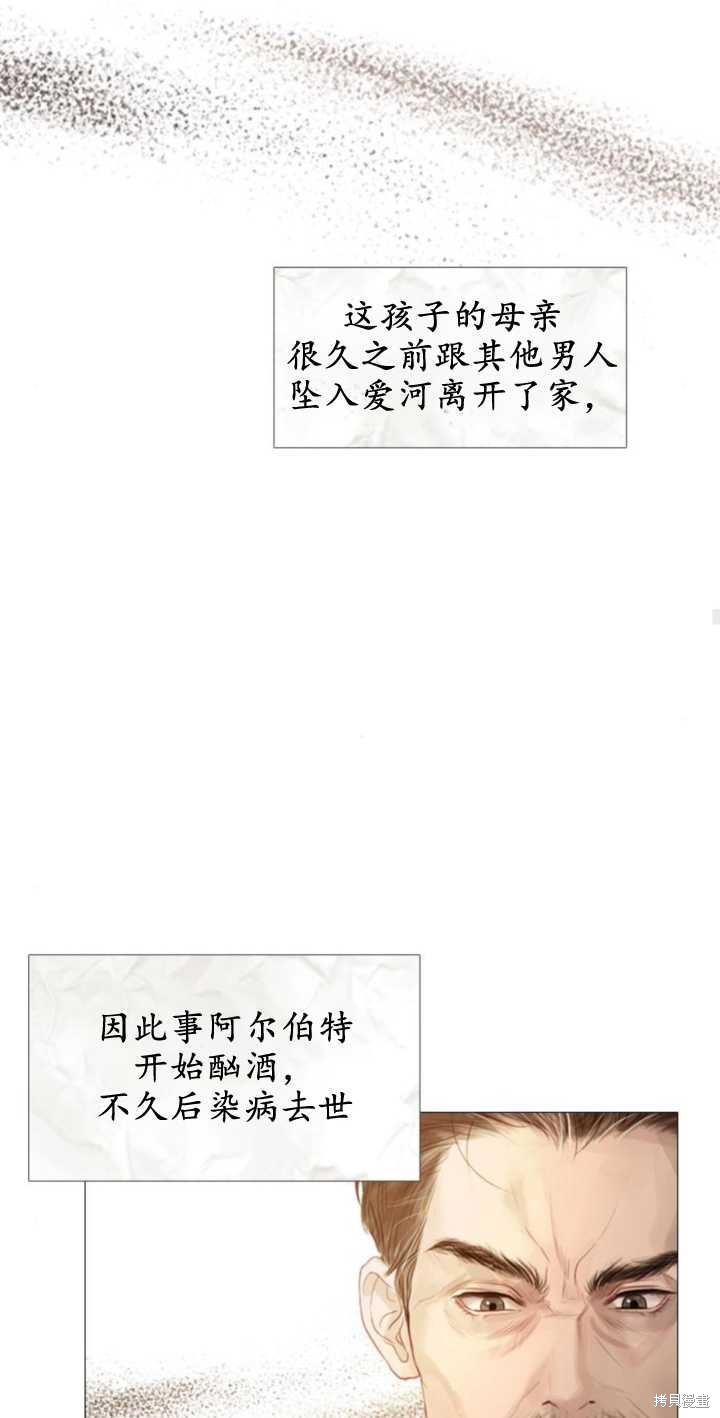 这孩子的母亲
很久之前跟其他男人
坠入爱河离开了家，
因此事阿尔伯特
开始酗酒，
不久后染病去世
拷貝漫畫